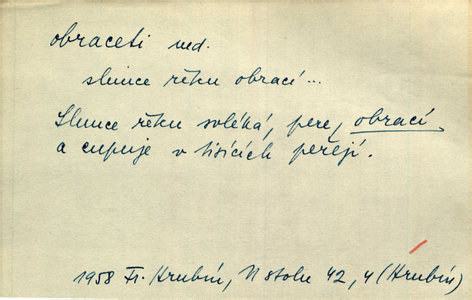 obraceti ned.
slunce řeku obrací...
Slunce řeku svléká, pere, obrací
a cupuje v tisících peřejí.
1958 Fr. Hrubín, U stolu 42, 4 (Hrubín)